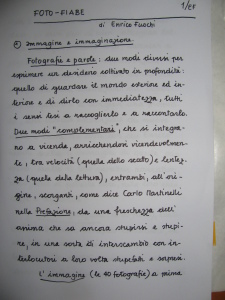 FOTO-FIABE
1/EF
di Enrico Fuochi
Immagine e immaginazione.
Fotografie e parole: due modi diversi per
esprimere un desiderio coltivato in profondità:
quello di guardare il mondo esterno ed in-
teriore e di dirlo con immediatezza, tutti
i sensi tesi a raccoglierlo e a raccontarlo.
Due modi "complementari", che si integra-
no a vicenda, arricchendosi vicendevolmen-
te, tra velocità (quella dello scatto) e lentez-
za (quella della lettura), entrambi, all'ori-
gine, sgorganti, come dice Carlo Martinelli
nella Prefazione, da una freschezza dell'
anima che sa ancora stupirsi e stupi-
re, in una sorta di interscambio con in-
terlocutori a loro volta stupefatti e sorpresi.
L'immagine (le 40 fotografie) a prima